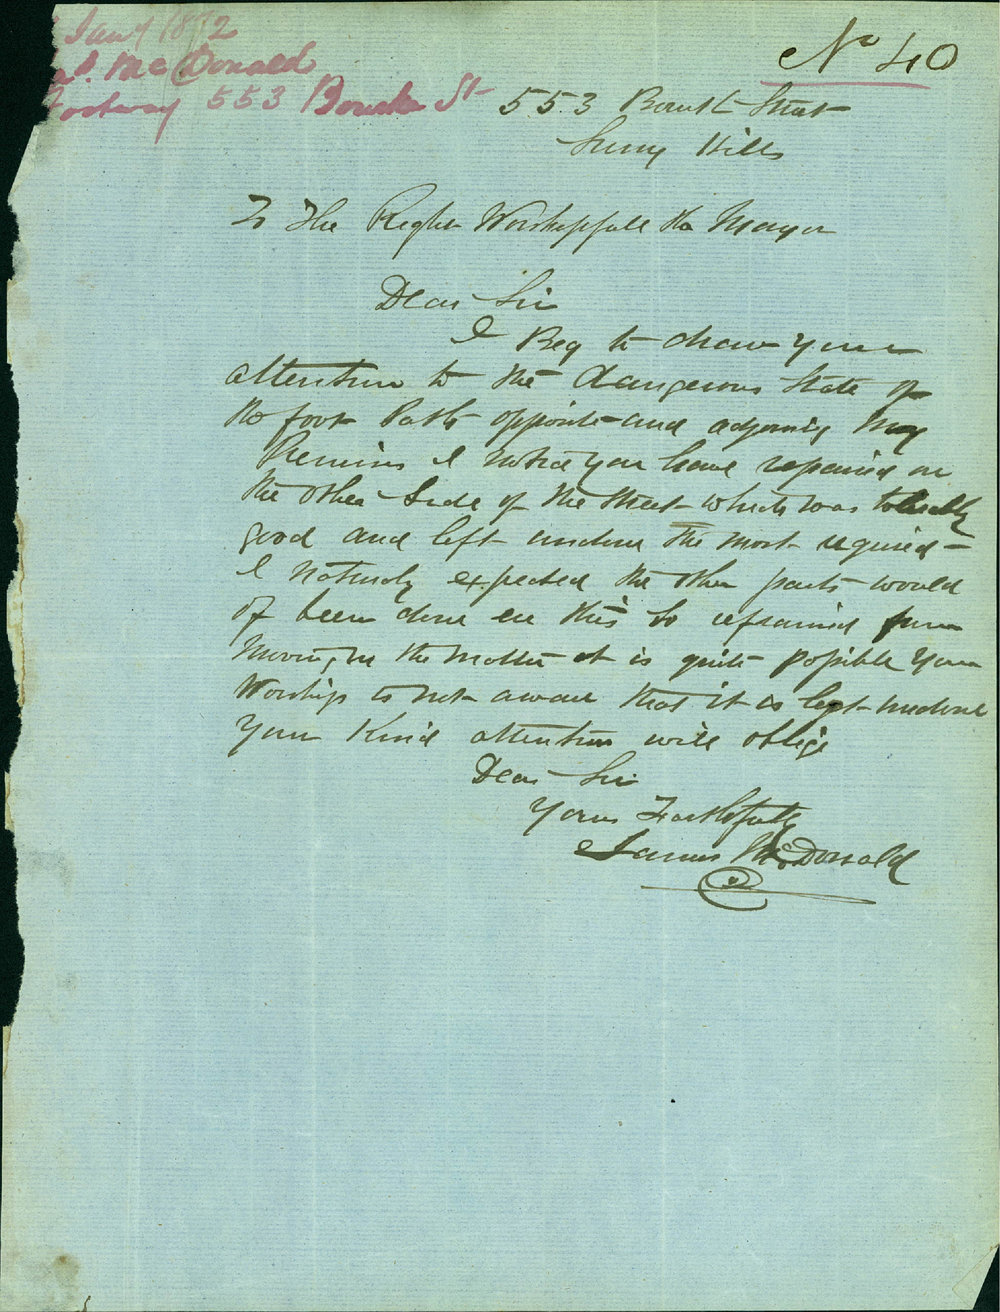 Jany 1872
Jas. McDonald
Footway 553 Bourke St
No 40
553 Bourk Street
Surry Hills
To The Right Worshipfull the Mayor
Dear Sir
I Beg to draw your
attention to the dangerous State of
the foot Path opposite and adjoining my
Premises I notice you have repaired on
the other Side of the Street which was tolerably
good and left undone the most required -
I naturaly expected the other parts would
of been done ere this So refrained from
Moving in the matter it is quite possible Your
Worship is not aware that it is left undone
Your Kind attention will oblige
Dear Sir
Yours Faithfully
James McDonald